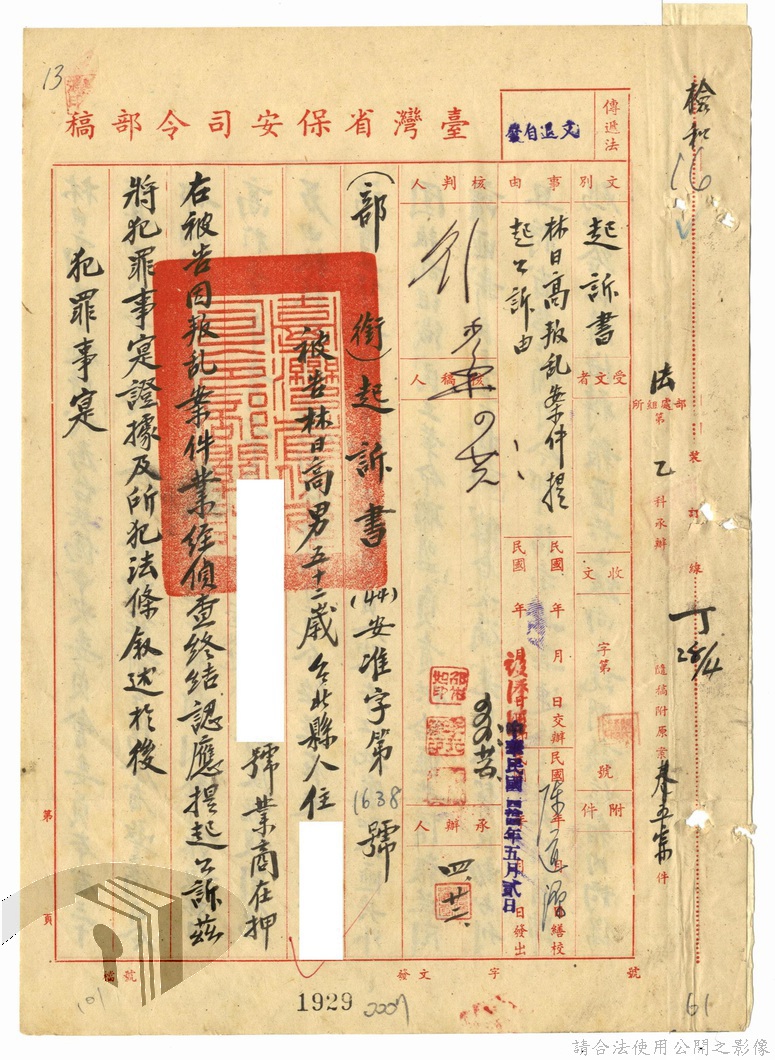 13
臺灣省保安司令部稿
傳遞法
文退自發
檢和
16
文別
起訴書
受文者
事由
林日高叛乱案件提
起公訴由
核判人
核稿人
承辦人
收文
字第
號
附件
民國 年 月 日交辦
民國 年 月 日繕校
中華民國四十四年五月貳日
日發出
四、廿三
法
部處組所
第
乙
科承辦
裝訂線
丁
28/4
隨稿附原案
卷五宗
件
(部銜)起訴書
(44)安准字第1638號
被告林日高男五十二歲台北縣人住
號業商在押
右被告因叛乱案件業經偵查終結認應提起公訴茲
將犯罪事寔證據及所犯法條敘述於後
犯罪事寔
第 頁
檔號
發文 字 號
1929
61
請合法使用公開之影像